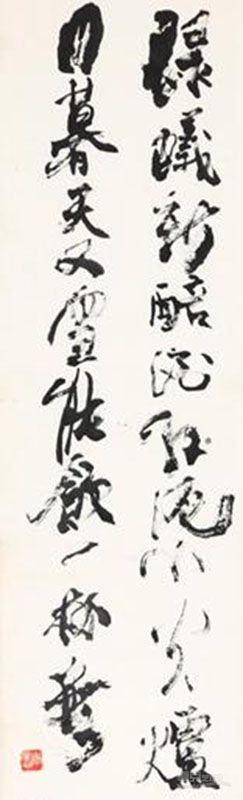 綠蟻新醅酒紅泥小火爐
日暮天又雪能飲一杯無